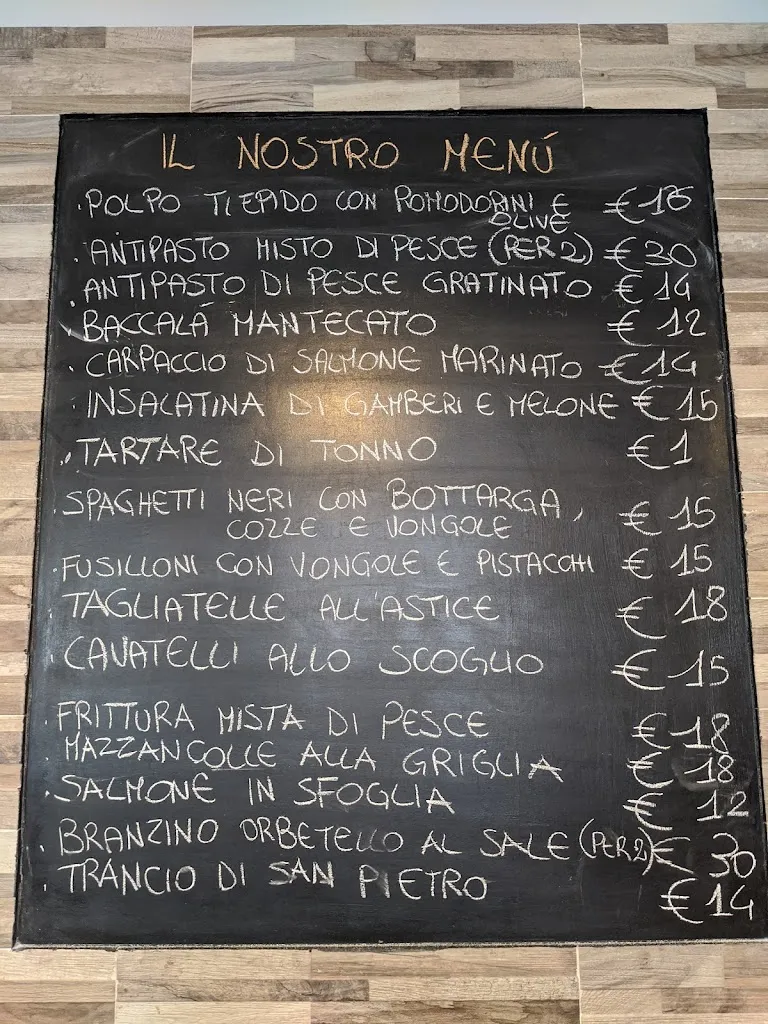 IL NOSTRO MENÚ
· POLPO TIEPIDO CON POMODORINI E OLIVE € 16
· ANTIPASTO MISTO DI PESCE (PER 2) € 30
· ANTIPASTO DI PESCE GRATINATO € 14
· BACCALÁ MANTECATO € 12
· CARPACCIO DI SALMONE MARINATO € 14
· INSALATINA DI GAMBERI E MELONE € 15
· TARTARE DI TONNO € 1
· SPAGHETTI NERI CON BOTTARGA, € 15
COZZE E VONGOLE
· FUSILLONI CON VONGOLE E PISTACCHI € 15
· TAGLIATELLE ALL'ASTICE € 18
· CAVATELLI ALLO SCOGLIO € 15
· FRITTURA MISTA DI PESCE € 18
· MAZZANCOLLE ALLA GRIGLIA € 18
· SALMONE IN SFOGLIA € 12
· BRANZINO ORBETELLO AL SALE (PER 2) € 30
· TRANCIO DI SAN PIETRO € 14